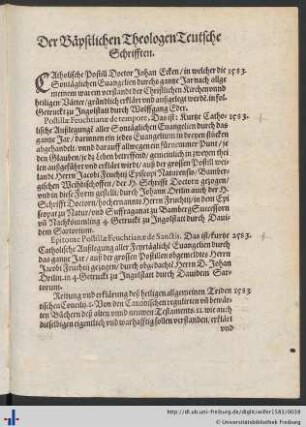 Der Bäpstlichen Theologen Teutsche
Schrifften.
CAtholische Postill Doctor Johan Ecken / in welcher die 1583.
Sontäglichen Euangelien durchs gantze Jar nach allge
meinem waren verstandt der Christlichen Kirchen vnnd
heiligen Vätter / gründlich erklärt vnd außgelegt werdē. in fol.
Getruckt zu Ingolstatt durch Wolffgang Eder.
Postilla Feuchtiana de tempore. Das ist: Kurtze Catho- 1583.
lische Außlegung aller Sontäglichen Euangelien durch das
gantze Jar / darinnen ein jedes Euangelium in dreyen stücken
abgehandelt / vnd darauff allwegen ein fürnemmer Punct /
den Glauben / oder Leben betreffend / gemeinlich in zweyen theil
len außgeführt vnd erklärt wird / auß der grossen Postill wei-
landt Herrn Jacobi Feuchtij Episcopi Naturensis / Bamber-
gischen Weihbischoffen / der H. Schrifft Doctorn gezogen /
vnd in diese Form gestelt: durch Johann Ertlin auch der H.
Schrifft Doctorn / hochernannts Herrn Feuchtij / in dem Epi
scopat zu Natur / vnd Suffraganat zu Bamberg Successorn
vñ Nachkömmling. 4. Getruckt zu Ingolstatt durch Daui-
dem Sartorium.
Epitome Postillæ Feuchtianæ de Sanctis. Das ist / kurtze 1583.
Catholische Außlegung aller Feyrtägliche Euangelien durch
das gantze Jar / auß der grossen Postillen obgemeldtes Herrn
Jacobi Feuchtij gezogen / durch obgedachtē Herrn D. Johan
Ertlin. in 4. Getruckt zu Ingolstatt durch Dauidem Sar-
torium.
Rettung vnd erklärung deß heiligen allgemeinen Triden 1583.
tischen Concilij. 1. Von den Canonischen regulierten vñ bewär
ten Büchern deß alten vnnd newen Testaments. 11. wie auch
dieselbigen eigentlich vnd warhafftig sollen verstanden / erklärt
vnd
http://dl.ub.uni-freiburg.de/diglit/willer1583/0038
© Universitätsbibliothek Freiburg